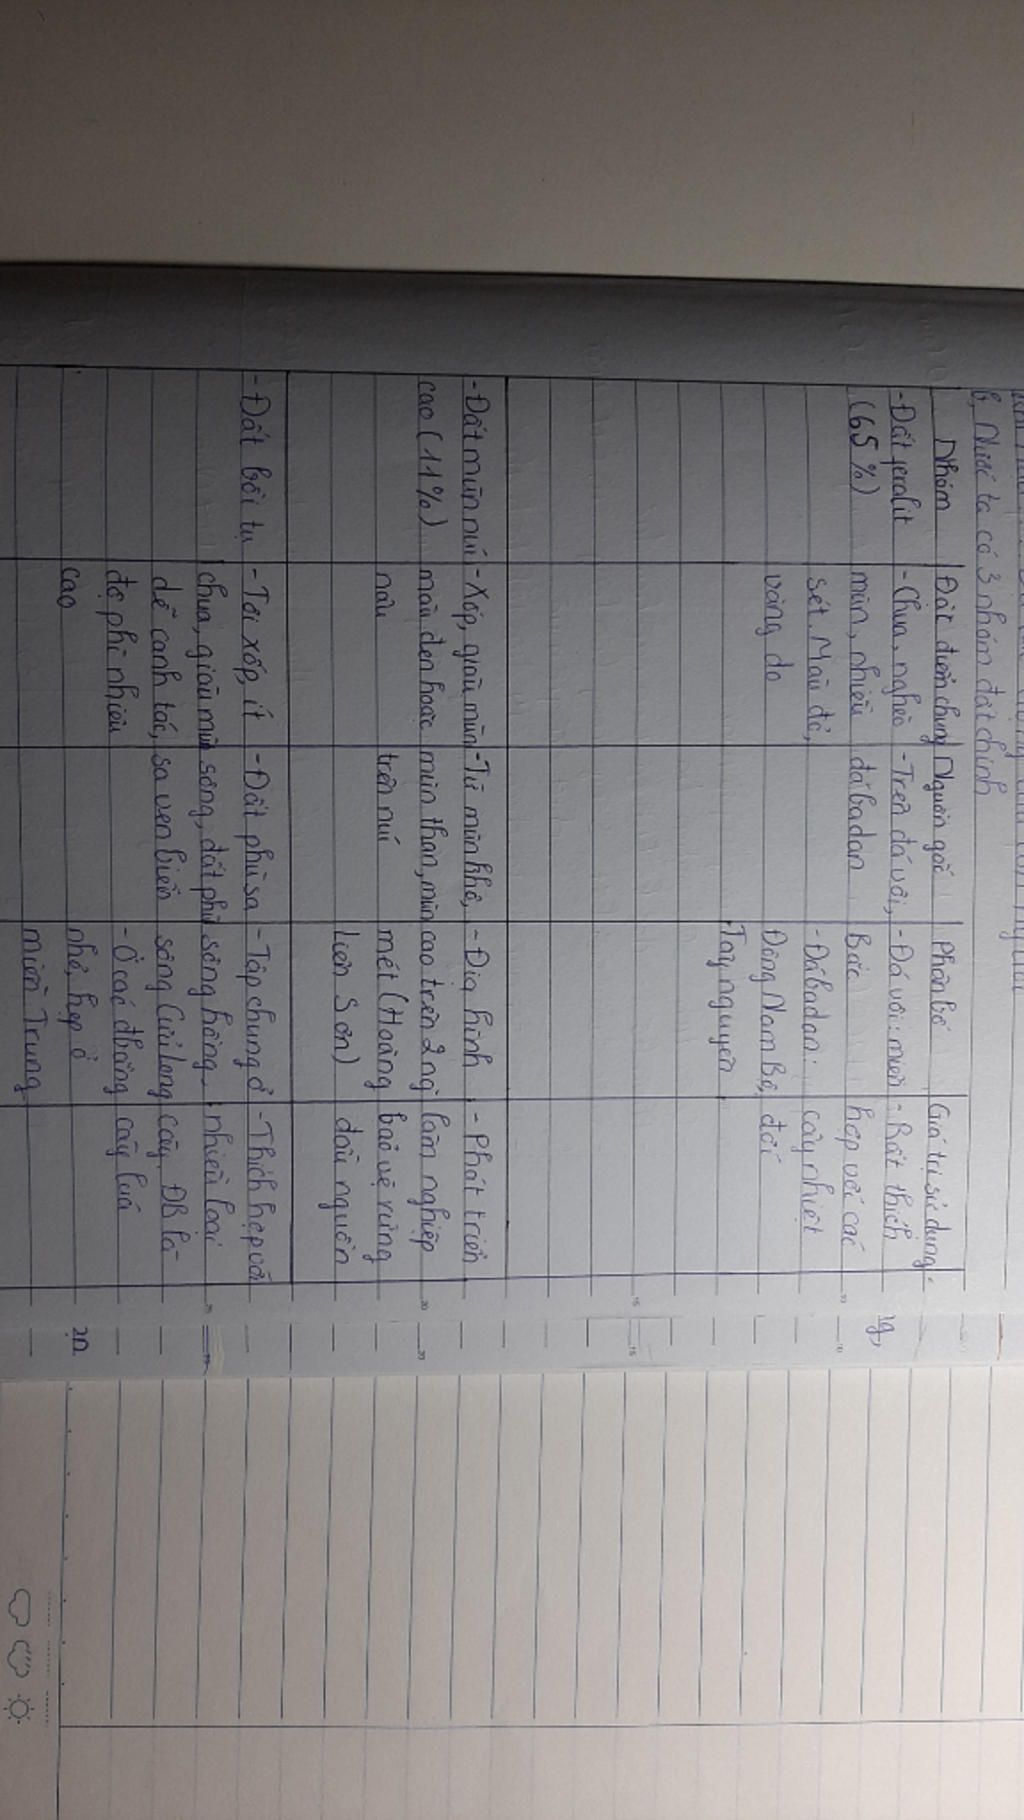 b, Nước ta có 3 nhóm đất chính
Nhóm Đặc điểm chung Nguồn gốc Phân bố Giá trị sử dụng
- Đất feralit - Chua, nghèo - Trên đá vôi, - Đá vôi: miền - Rất thích
(65%) mùn, nhiều đá badan Bắc hợp với các
sét. Màu đỏ, - Đá badan: cây nhiệt
vàng do Đông Nam Bộ, đới
Tây nguyên
- Đất mùn núi - Xốp, giàu mùn - Từ mùn khô, - Địa hình - Phát triển
cao (11%) màu đen hoặc mùn than, mùn cao trên 2 ng lâm nghiệp
nâu trên núi mét (Hoàng bảo vệ rừng
Liên Sơn) đầu nguồn
- Đất bồi tụ - Tơi xốp, ít - Đất phù sa - Tập chung ở - Thích hợp với
chua, giàu mùn sông, đất phù sông hồng, nhiều loại
dễ canh tác, sa ven biển sông Cửu long cây. ĐB là
độ phì nhiêu - Ở các đbằng cây luá
cao nhỏ, hẹp ở
miền Trung